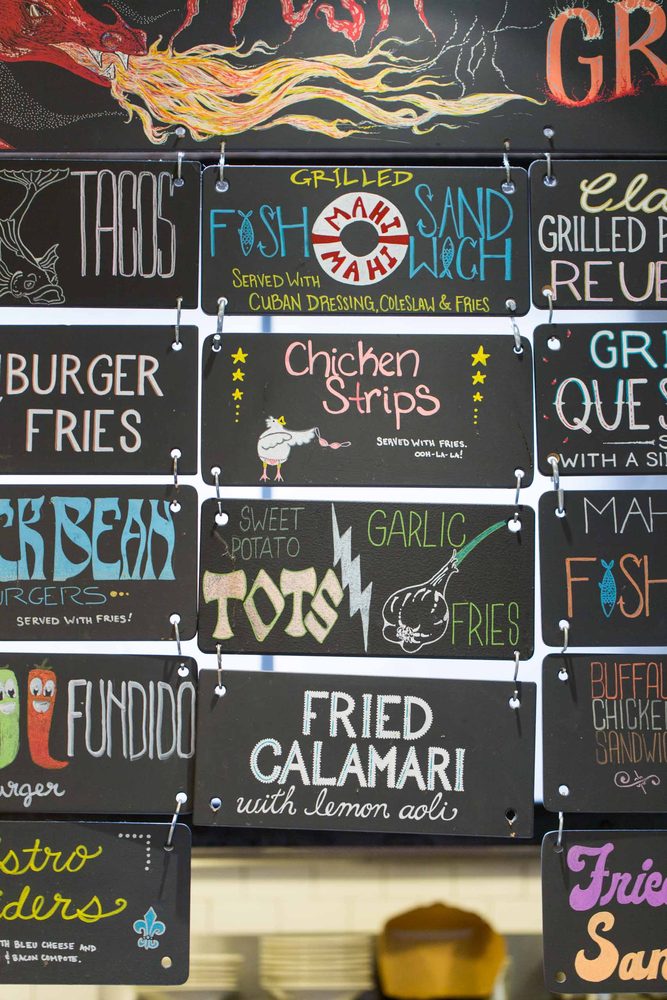 GR
TACOS
GRILLED
FISH MAHI MAHI SANDWICH
SERVED WITH
CUBAN DRESSING, COLESLAW & FRIES
Cla
GRILLED P
REUB
BURGER
FRIES
Chicken
Strips
SERVED WITH FRIES.
OOH-LA-LA!
GRI
QUES
S
WITH A SI
CK BEAN
URGERS
SERVED WITH FRIES!
SWEET
POTATO
TOTS
GARLIC
FRIES
MAH
FISH
FUNDIDO
urger
FRIED
CALAMARI
with lemon aoli
BUFFAL
CHICKE
SANDWIC
stro
iders
TH BLEU CHEESE AND
& BACON COMPOTE.
Frie
San